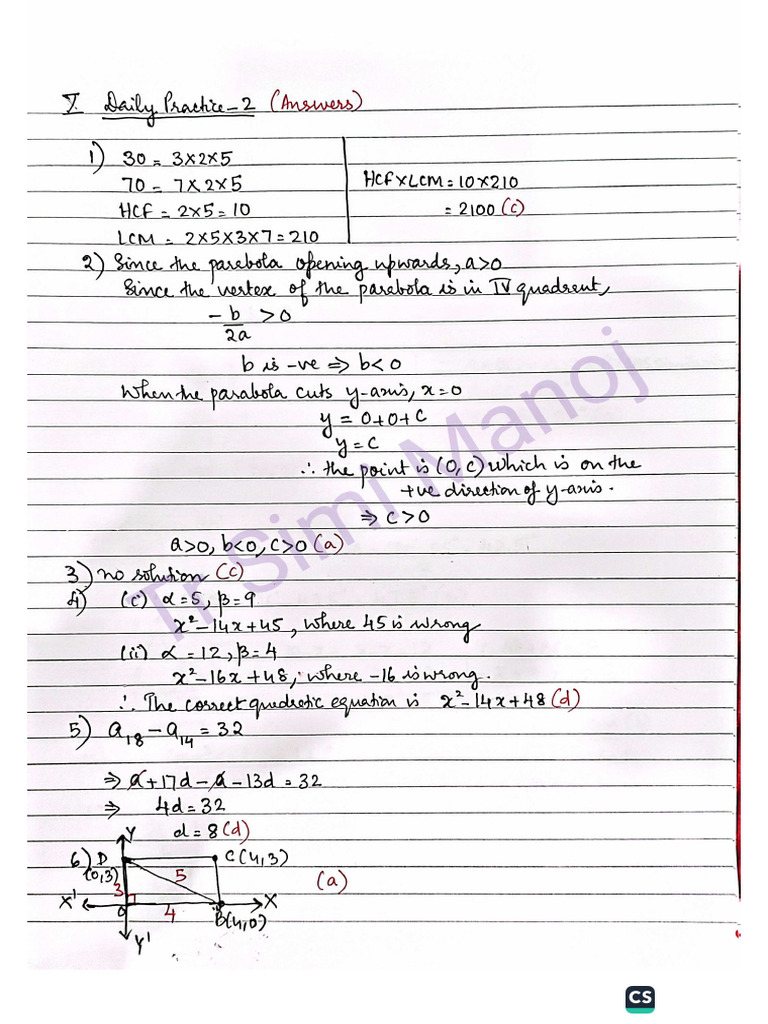 I. Daily Practice-2 (Answers)
1) 30 = 3×2×5
70 = 7×2×5
HCF = 2×5=10
LCM = 2×5×3×7=210
HCF×LCM=10×210
= 2100 (c)
2) Since the parebola opening upwards, a>0
Since the vertex of the parabola is in IV quadrent,
-b/2a >0
b is -ve ⇒ b<0
When the parabola cuts y-axis, x=0
y = 0+0+c
y=c
∴ the point is (0,c) which is on the
+ve direction of y-axis.
⇒ c>0
a>0, b<0, c>0 (a)
3) no solution (c)
4) (i) α=5, β=9
x²-14x+45, where 45 is wrong
(ii) α=12, β=4
x²-16x+48, where -16 is wrong.
∴ The correct quedretic equation is x²-14x+48 (d)
5) a₁₈-a₁₄=32
⇒ a+17d-a-13d=32
⇒ 4d=32
d=8 (d)
Y
6) D C(4,3)
(0,3) 5
3 (a)
X' O 4 B(4,0) X
Y'
Tr Simi Manoj
CS